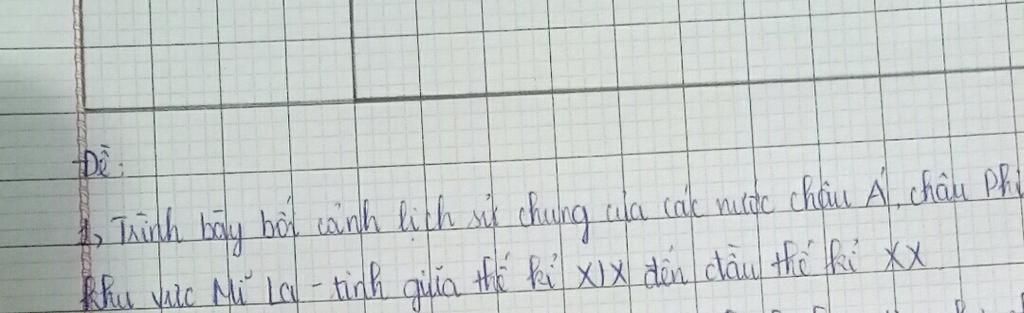 Đề:
1, Trình bày bối cảnh lịch sử chung của các nước châu Á, châu Phi
khu vực Mĩ La-tinh giữa thế kỉ XIX đến đầu thế kỉ XX